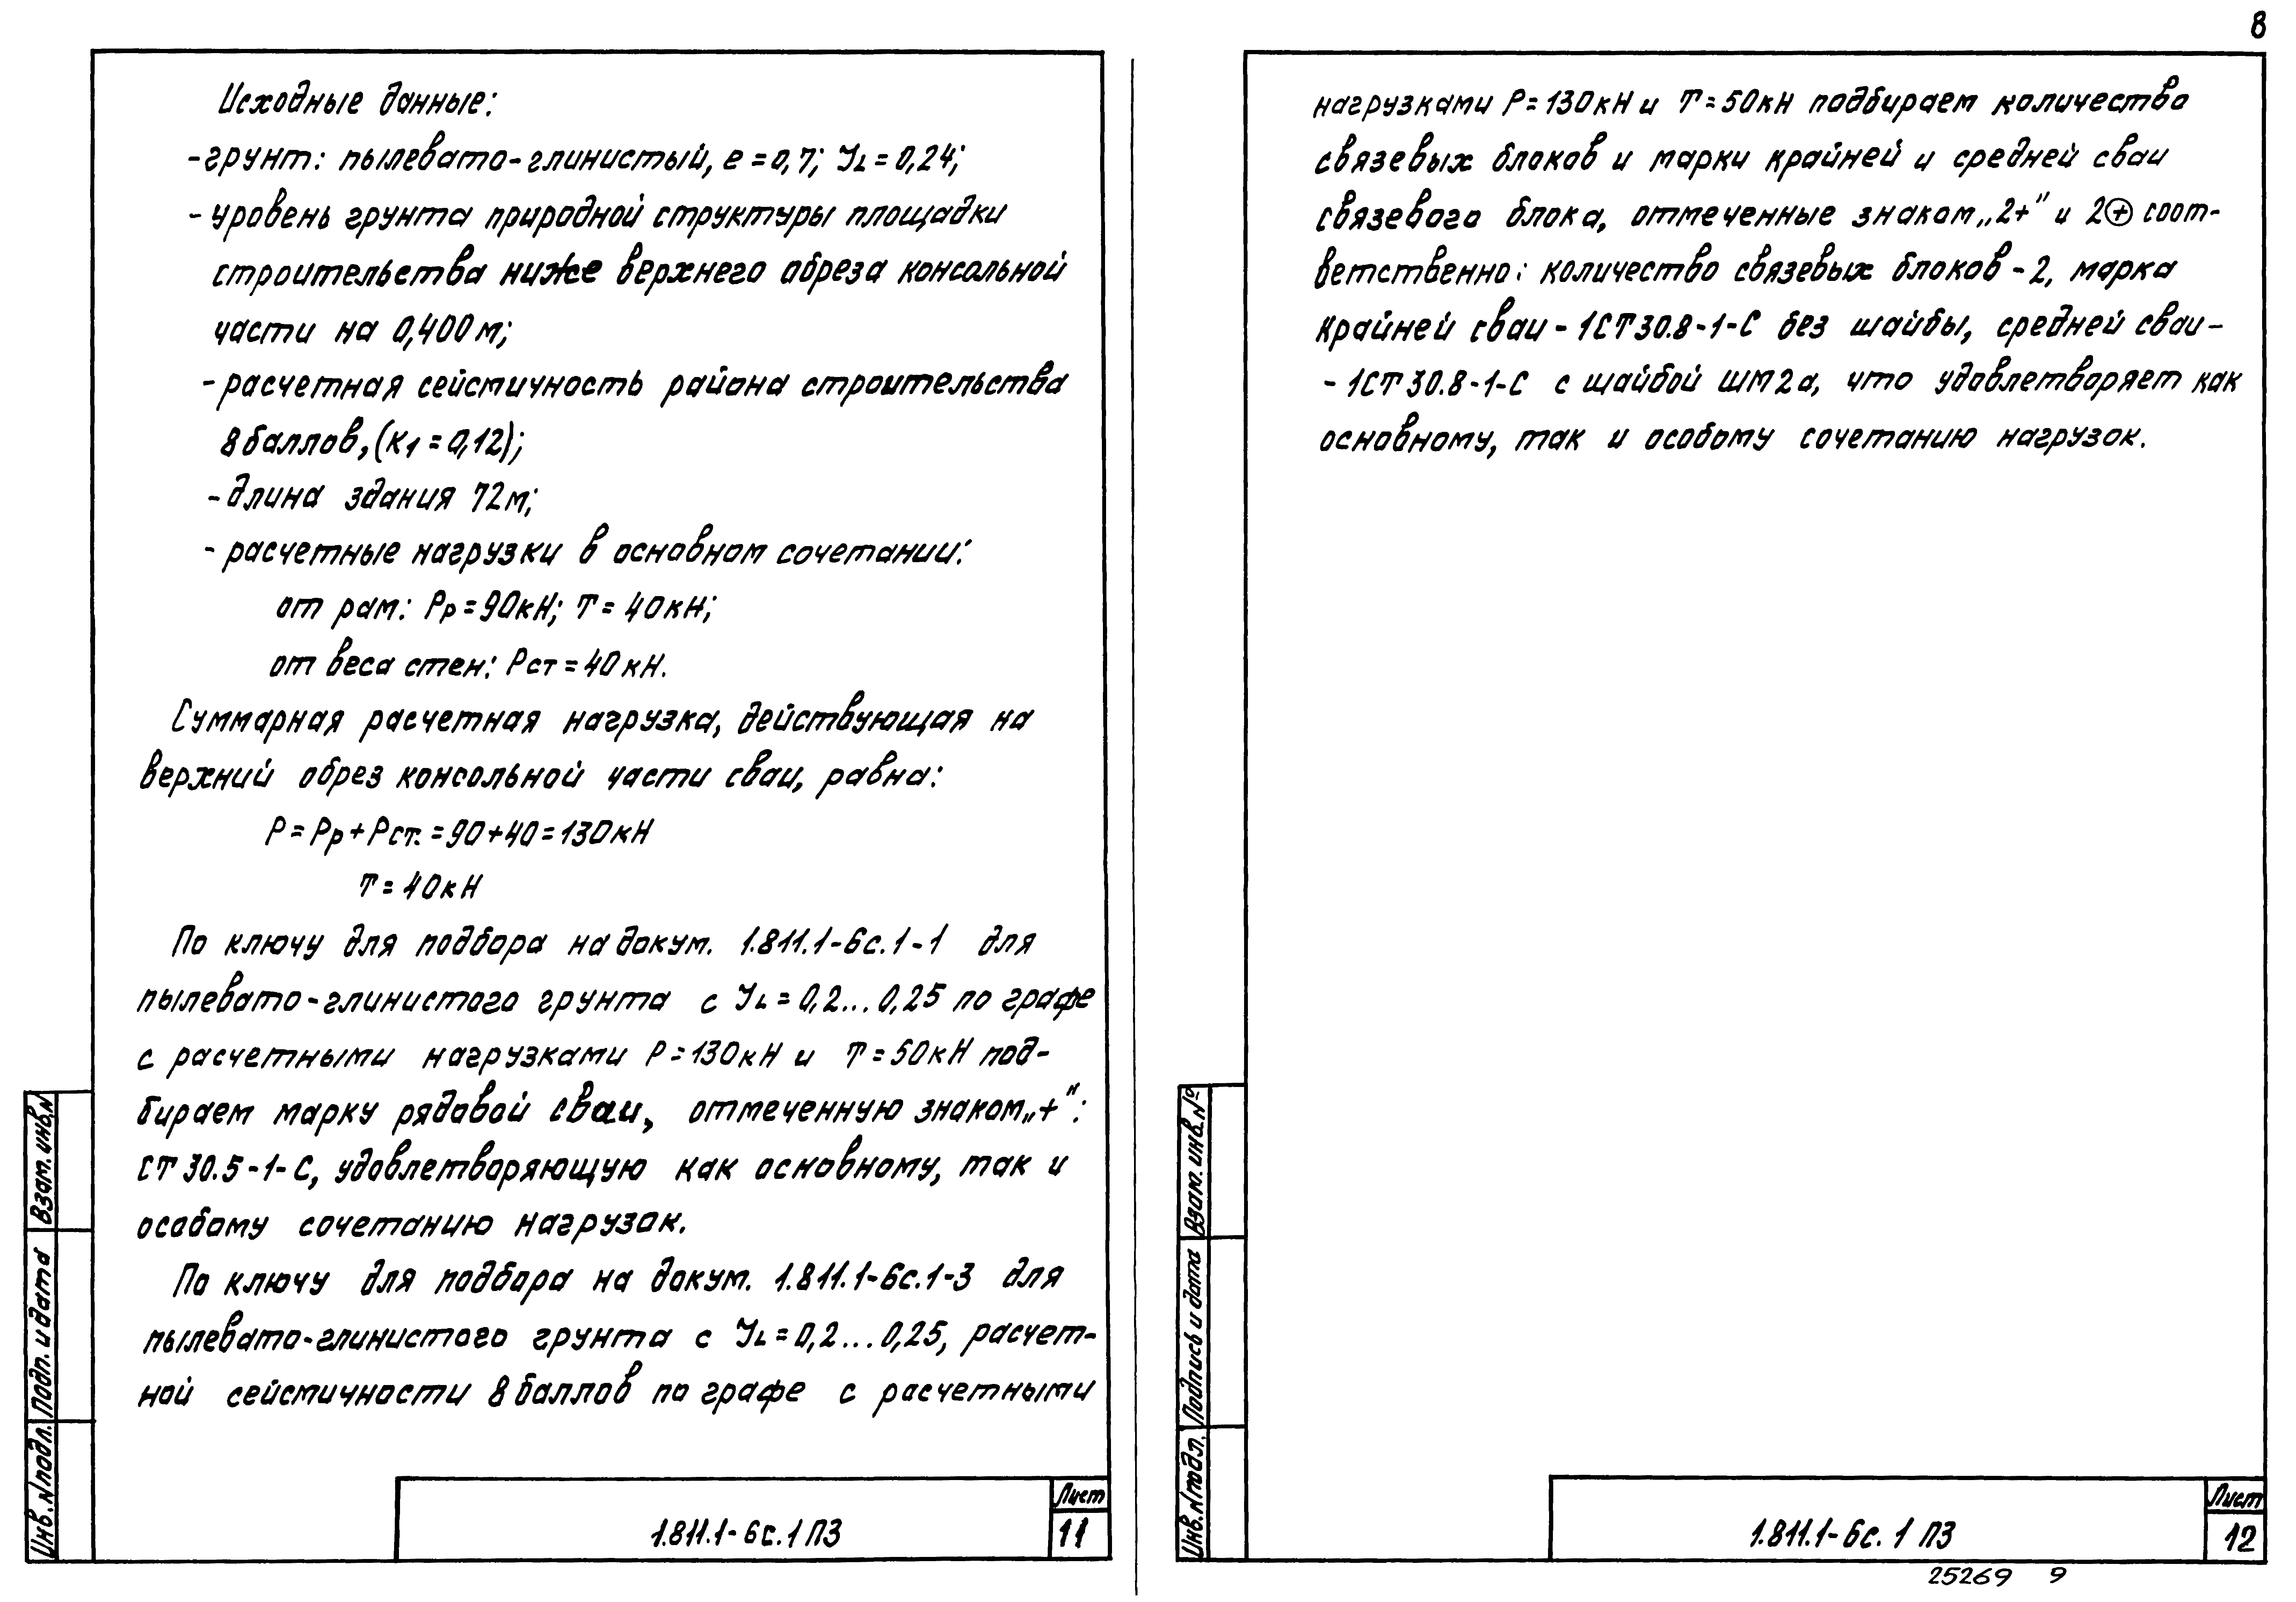 8
Исходные данные:
-грунт: пылевато-глинистый, e=0,7; Y_L=0,24;
- уровень грунта природной структуры площадки
строительства ниже верхнего обреза консольной
части на 0,400м;
- расчетная сейсмичность района строительства
8 баллов, (K1=0,12);
- длина здания 72м;
- расчетные нагрузки в основном сочетании:
от рам: Pр=90кН; T=40кН;
от веса стен: Pст=40кН.
Суммарная расчетная нагрузка, действующая на
верхний обрез консольной части сваи, равна:
P=Pр+Pст.=90+40=130кН
T=40кН
По ключу для подбора на докум. 1.811.1-6с.1-1 для
пылевато-глинистого грунта с Y_L=0,2...0,25 по графе
с расчетными нагрузками P=130кН и T=50кН под-
бираем марку рядовой сваи, отмеченную знаком „+":
СТ30.5-1-С, удовлетворяющую как основному, так и
особому сочетанию нагрузок.
По ключу для подбора на докум. 1.811.1-6с.1-3 для
пылевато-глинистого грунта с Y_L=0,2...0,25, расчет-
ной сейсмичности 8 баллов по графе с расчетными
Взам. инв. N
Подп. и дата
Инв. N подл.
1.811.1-6с.1 ПЗ
Лист
11
нагрузками P=130кН и T=50кН подбираем количество
связевых блоков и марки крайней и средней сваи
связевого блока, отмеченные знаком „2+" и 2⊕ соот-
ветственно: количество связевых блоков-2, марка
крайней сваи-1СТ30.8-1-С без шайбы, средней сваи-
- 1СТ30.8-1-С с шайбой ШМ2а, что удовлетворяет как
основному, так и особому сочетанию нагрузок.
Взам. инв. №
Подпись и дата
Инв. N подл.
1.811.1-6с.1 ПЗ
Лист
12
25269 9